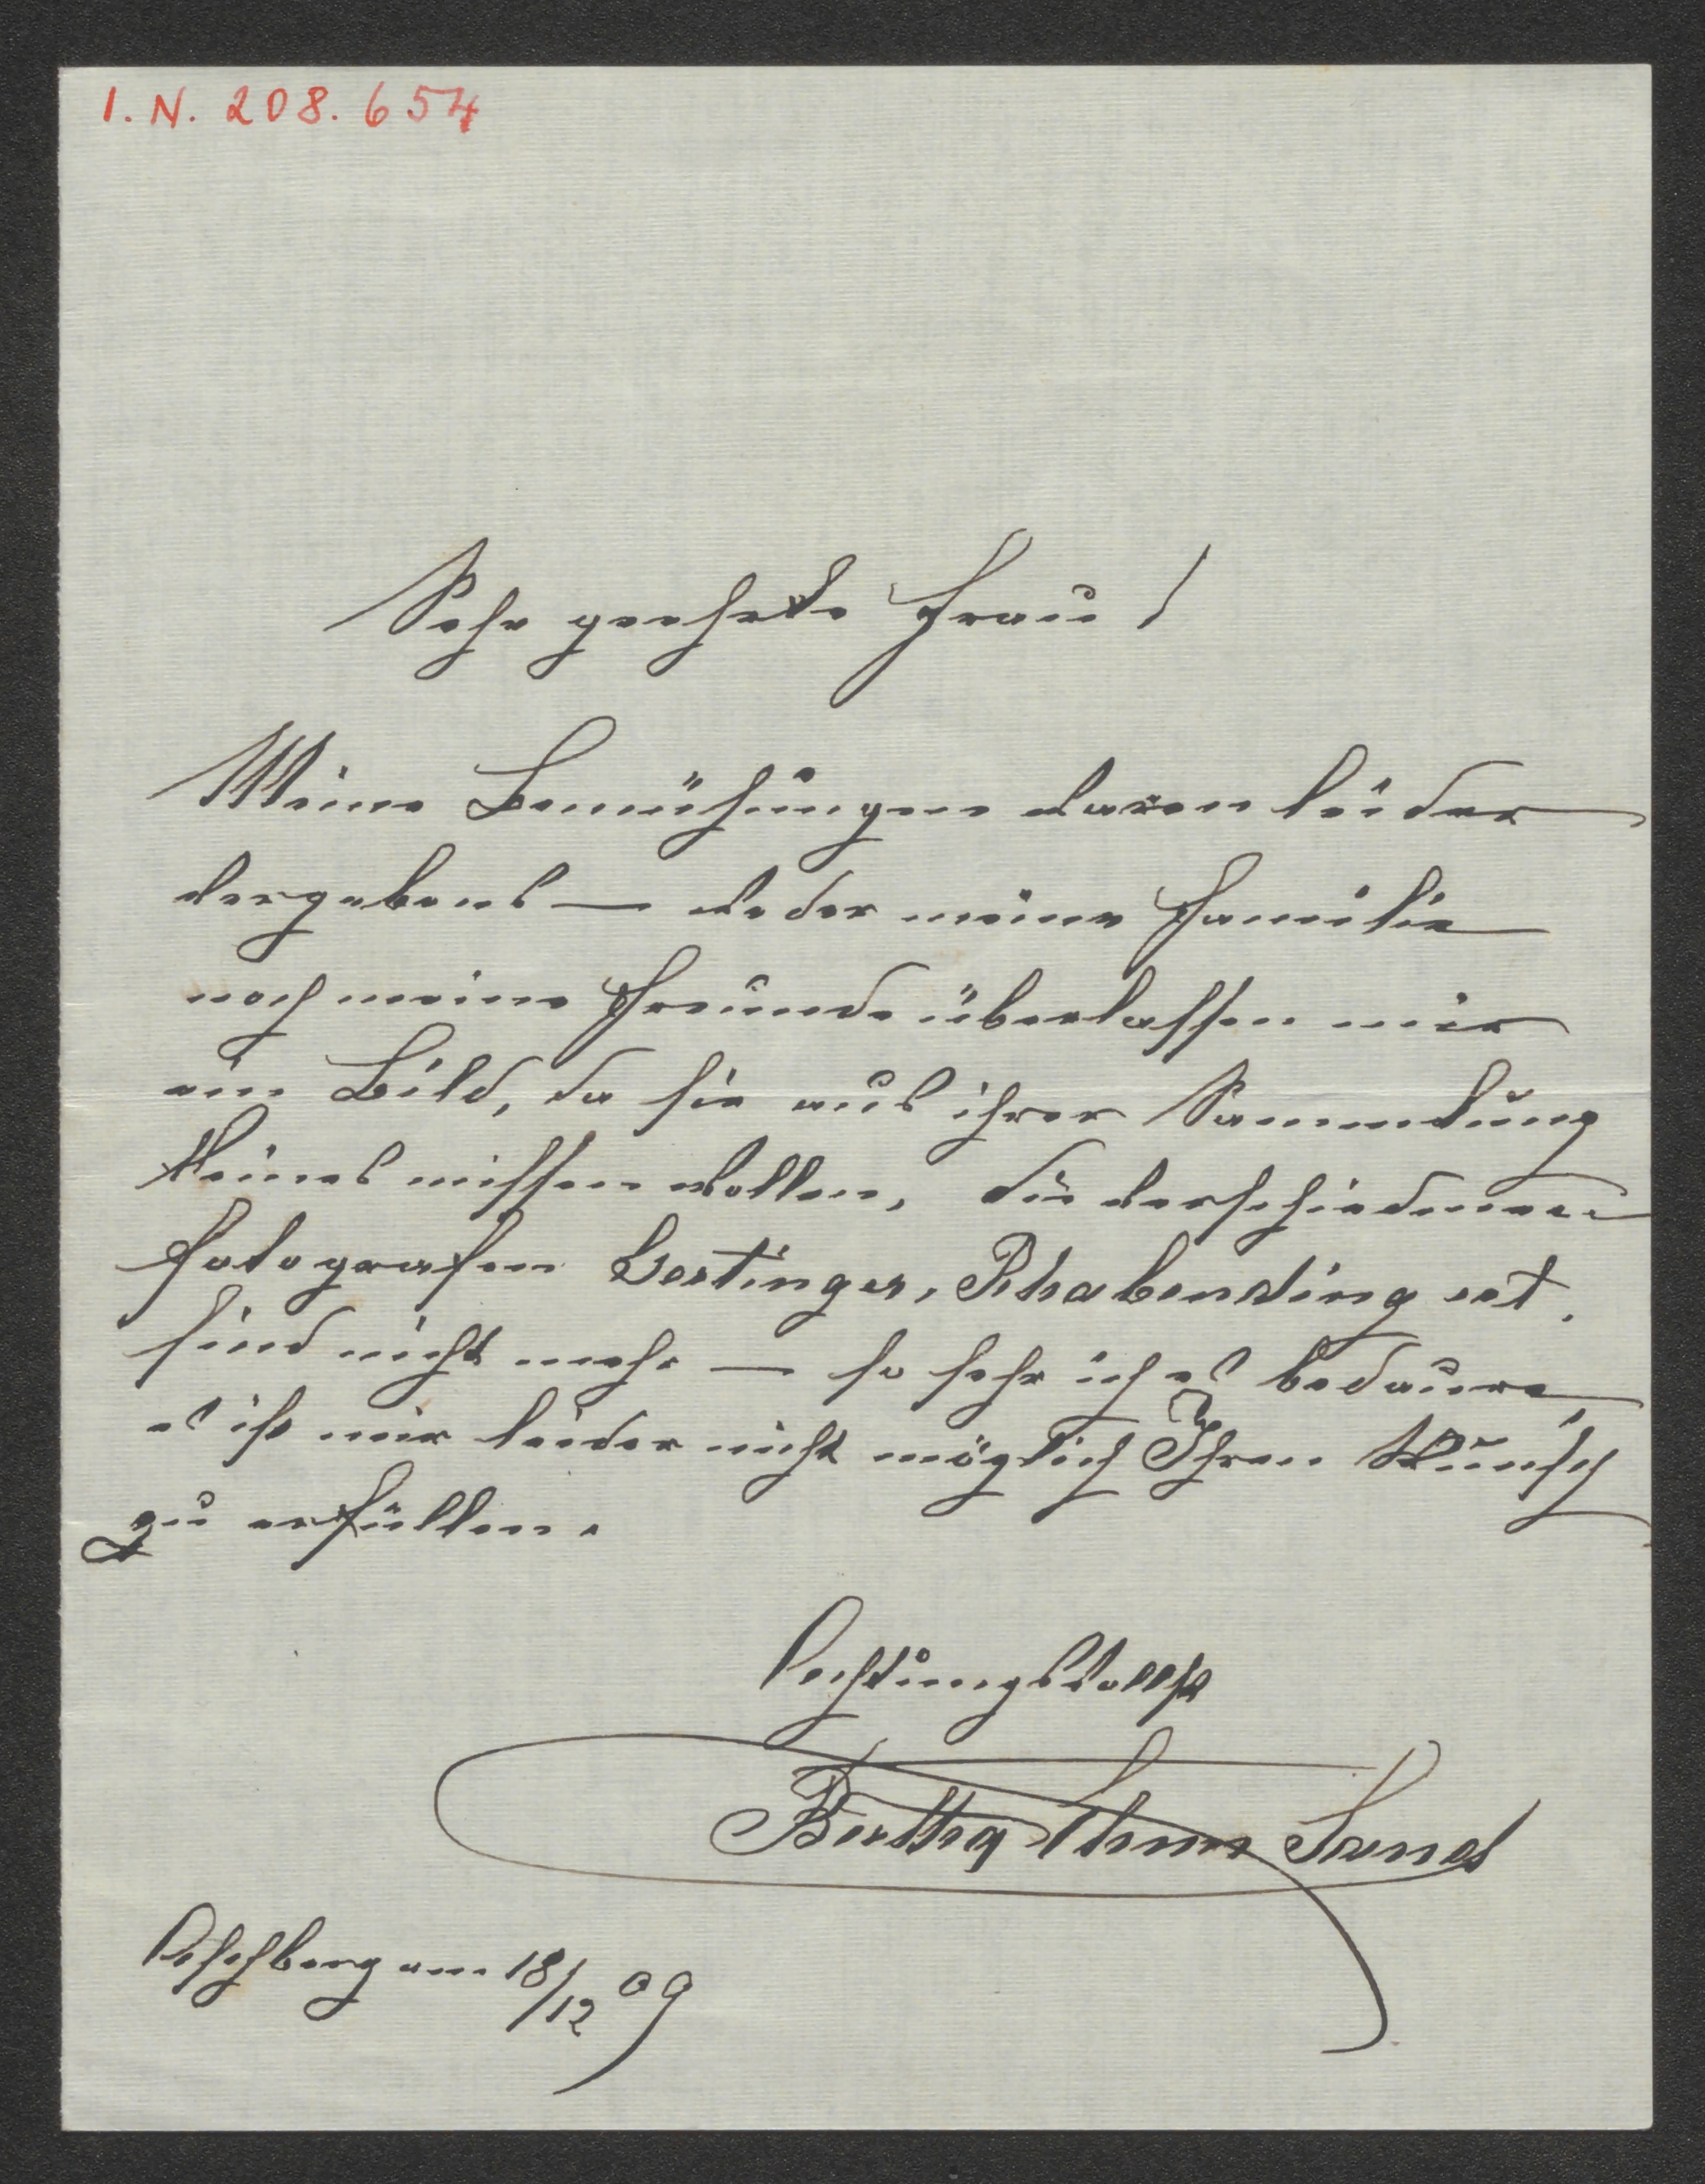 I. N. 208.654
Sehr geehrte Frau!
Meine Bemühungen waren leider
vergebens — weder meine Familie
noch meine Freunde überlassen mir
ein Bild, da sie aus ihrer Sammlung
keines missen wollen, die verschiedenen
Fotografen Bertinger, Rhabending ect.
sind nicht mehr — so sehr ich es bedaure
es ist mir leider nicht möglich Ihren Wunsch
zu erfüllen.
Achtungsvollst
Bertha
Aschberg am 18/12 09